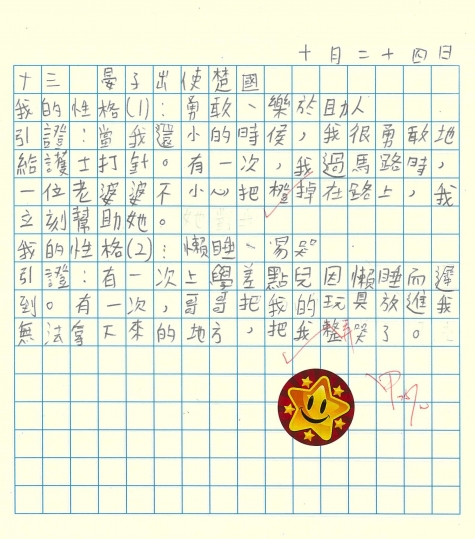 十月二十四日
十三 晏子出使楚國
我的性格(1)：勇敢、樂於助人
引證：當我還小的時侯，我很勇敢地
給護士打針。有一次，我過馬路時，
一位老婆婆不小心把橙掉在路上，我
立刻幫助她。
我的性格(2)：懶睡、易哭
引證：有一次上學差點兒因懶睡而遲
到。有一次，哥哥把我的玩具放進我
無法拿下來的地方，把我弄哭了。
甲